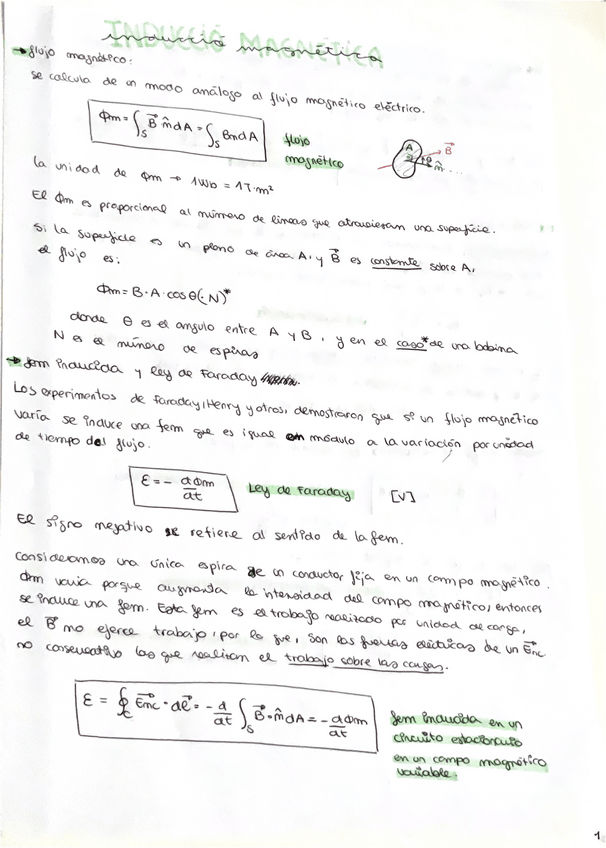 INDUCCIÓ MAGNÉTICA
inducció magnética
→ flujo magnético:
se calcula de un modo análogo al flujo magnético eléctrico.
Φm = ∫S B⃗ n̂ dA = ∫S Bn dA
flujo magnético
A B⃗ θ n̂
la unidad de Φm → 1Wb = 1T·m²
El Φm es proporcional al número de líneas que atraviesan una superficie.
Si la superficie es un plano de área A, y B⃗ es constante sobre A,
el flujo es:
Φm = B·A·cosθ(·N)*
donde θ es el angulo entre A y B, y en el caso* de una bobina
N es el número de espiras
→ fem inducida y ley de Faraday
Los experimentos de Faraday, Henry y otros, demostraron que si un flujo magnético
varía se induce una fem que es igual en módulo a la variación por unidad
de tiempo del flujo.
ℰ = - dΦm/dt
Ley de Faraday [V]
El signo negativo se refiere al sentido de la fem.
Consideramos una única espira de un conductor fija en un campo magnético.
Φm varia porque augmenta la intensidad del campo magnético, entonces
se induce una fem. Esta fem es el trabajo realizado por unidad de carga,
el B⃗ no ejerce trabajo, por lo que, son las fuerzas eléctricas de un E⃗nc
no conservativo las que realizan el trabajo sobre las cargas.
ℰ = ∮C E⃗nc · dℓ⃗ = - d/dt ∫S B⃗ · n̂ dA = - dΦm/dt
fem inducida en un
circuito estacionario
en un campo magnético
variable.
1